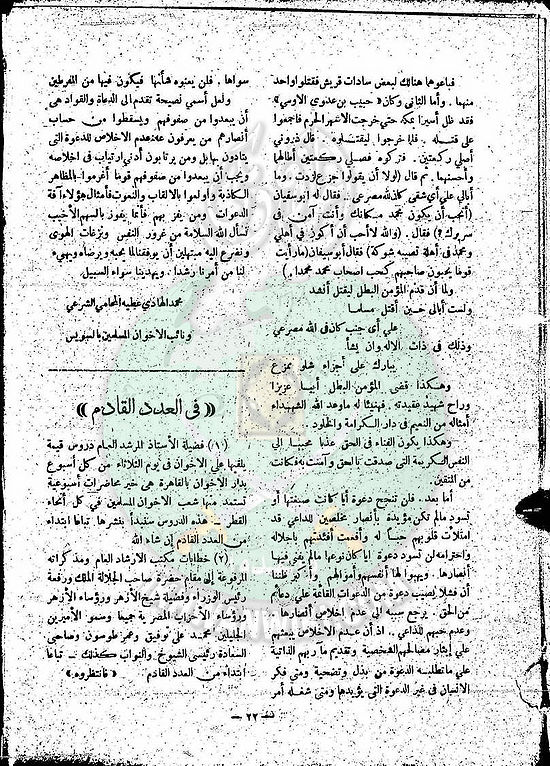 فباعوها هنالك لبعض سادات قريش فقتلوا واحد
منهما . وأما الثاني وكان « حبيب بن عدوى الاوسي »
فقد ظل أسيرا بمكة حتى خرجت الاشهر الحرم فأجمعوا
على قتله . فلما خرجوا ليقتلوه . قال ذروني
أصلي ركعتين . فتركوه فصلى ركعتين أطالهما
وأحسنهما . ثم قال (لولا أن يقولوا جزع لزدت . وما
أبالي على أي شقي كان لله مصرعي . . فقال له ابوسفيان
(أتحب أن يكون محمد مكانك وأنت آمن في
سربك؟) فقال . (والله لا أحب أن أكون في أهلي
ومحمد في أهله تصيبه شوكة) فقال أبوسفيان (ما رأيت
قوما يحبون صاحبهم كحب اصحاب محمد محمدا . )
ولما أن قدم المؤمن البطل ليقتل أنشد
ولست أبالي حين أقتل مسلما
على أي جنب كان في الله مصرعي
وذلك في ذات الاله وان يشأ
يبارك على أجزاء شلو ممزع
وهكذا قضى المؤمن البطل أبيا عزيزا
وراح شهيد عقيدته . فهنيئا له ما وعد الله الشهداء
أمثاله من النعيم في دار الكرامة والخلود .
وهكذا يكون الفناء في الحق عذبا محببا الى
النفس الكريمة التى صدقت بالحق وآمنت به فكانت
من المتقين
أما بعد . فلن تنجح دعوة أيا كانت صبغتها أو
تسود مالم تكن مؤيدة بأنصار مخلصين للداعي قد
امتلأت قلوبهم حبا له وأفعمت أفئدتهم باجلاله
واحترامه لن تسود دعوة ايا كان نوعها مالم يفنى فيها
أنصارها . ويهبوا لها أنفسهم وأموالهم وأكبر ظننا
أن فشلا يصيب دعوة من الدعوات القائمة على دعائم
من الحق . يرجع سببه الى عدم اخلاص أنصارها .
وعدم حبهم للداعي . اذ أن عدم الاخلاص يبعثهم
على إيثار مصالحهم الشخصية وتقديم مآربهم الذاتية
على ما تتطلبه الدعوة من بذل وتضحية ومتى فكر
الانسان في غير الدعوة التى يؤيدها ومتى شغله أمر
سواها . فلن يعنوه شأنها فيكون فيها من المفرطين
ولعل أسمى نصيحة تقدم الى الدعاة والقواد هى
أن يبعدوا من صفوفهم ويسقطوا من حساب
أنصارهم من يعرفون عدم الاخلاص للدعوة التى
ينادون بها بل ومن يرتابون أدنى ارتياب في اخلاصه
ويجب أن يبعدوا من صفوفهم قوما أغرموا بالمظاهر
الكاذبة واولعوا بالالقاب والنعوت فأمثال هؤلاء آفة
الدعوات . ومن يفز بهم فأنما يفوز بالسهم الأخيب
نسأل الله السلامة من غرور النفس ونزغات الهوى
ونضرع اليه مبتهلين أن يوفقنا لما يحبه ويرضاه ويهيء
لنا من أمرنا رشدا . ويهدينا سواء السبيل
محمد الهادي عطيه المحامى الشرعي
ونائب الاخوان المسلمين بالسويس
« في العدد القادم »
(١) فضيلة الأستاذ المرشد العام دروس قيمة
يلقيها على الاخوان في يوم الثلاثاء من كل أسبوع
بدار الاخوان بالقاهرة هى خير محاضرات أسبوعية
تستمد منها شعب الاخوان المسلمين في كل أنحاء
القطر هذه الدروس سنبدأ بنشرها تباعا ابتداء
من العدد القادم إن شاء الله
(٢) خطابات مكتب الارشاد العام ومذكراته
المرفوعة الى مقام حضرة صاحب الجلالة الملك ورفعة
رئيس الوزراء وفضيلة شيخ الأزهر ورؤساء الأزهر
ورؤساء الأحزاب المصرية جميعا وسمو الأميرين
الجليلين محمد على توفيق وعمر طوسون وصاحبى
السعادة رئيسى الشيوخ والنواب كذلك – تباعا
ابتداء من العدد القادم « فانتظروه . »
— ٢٢ —